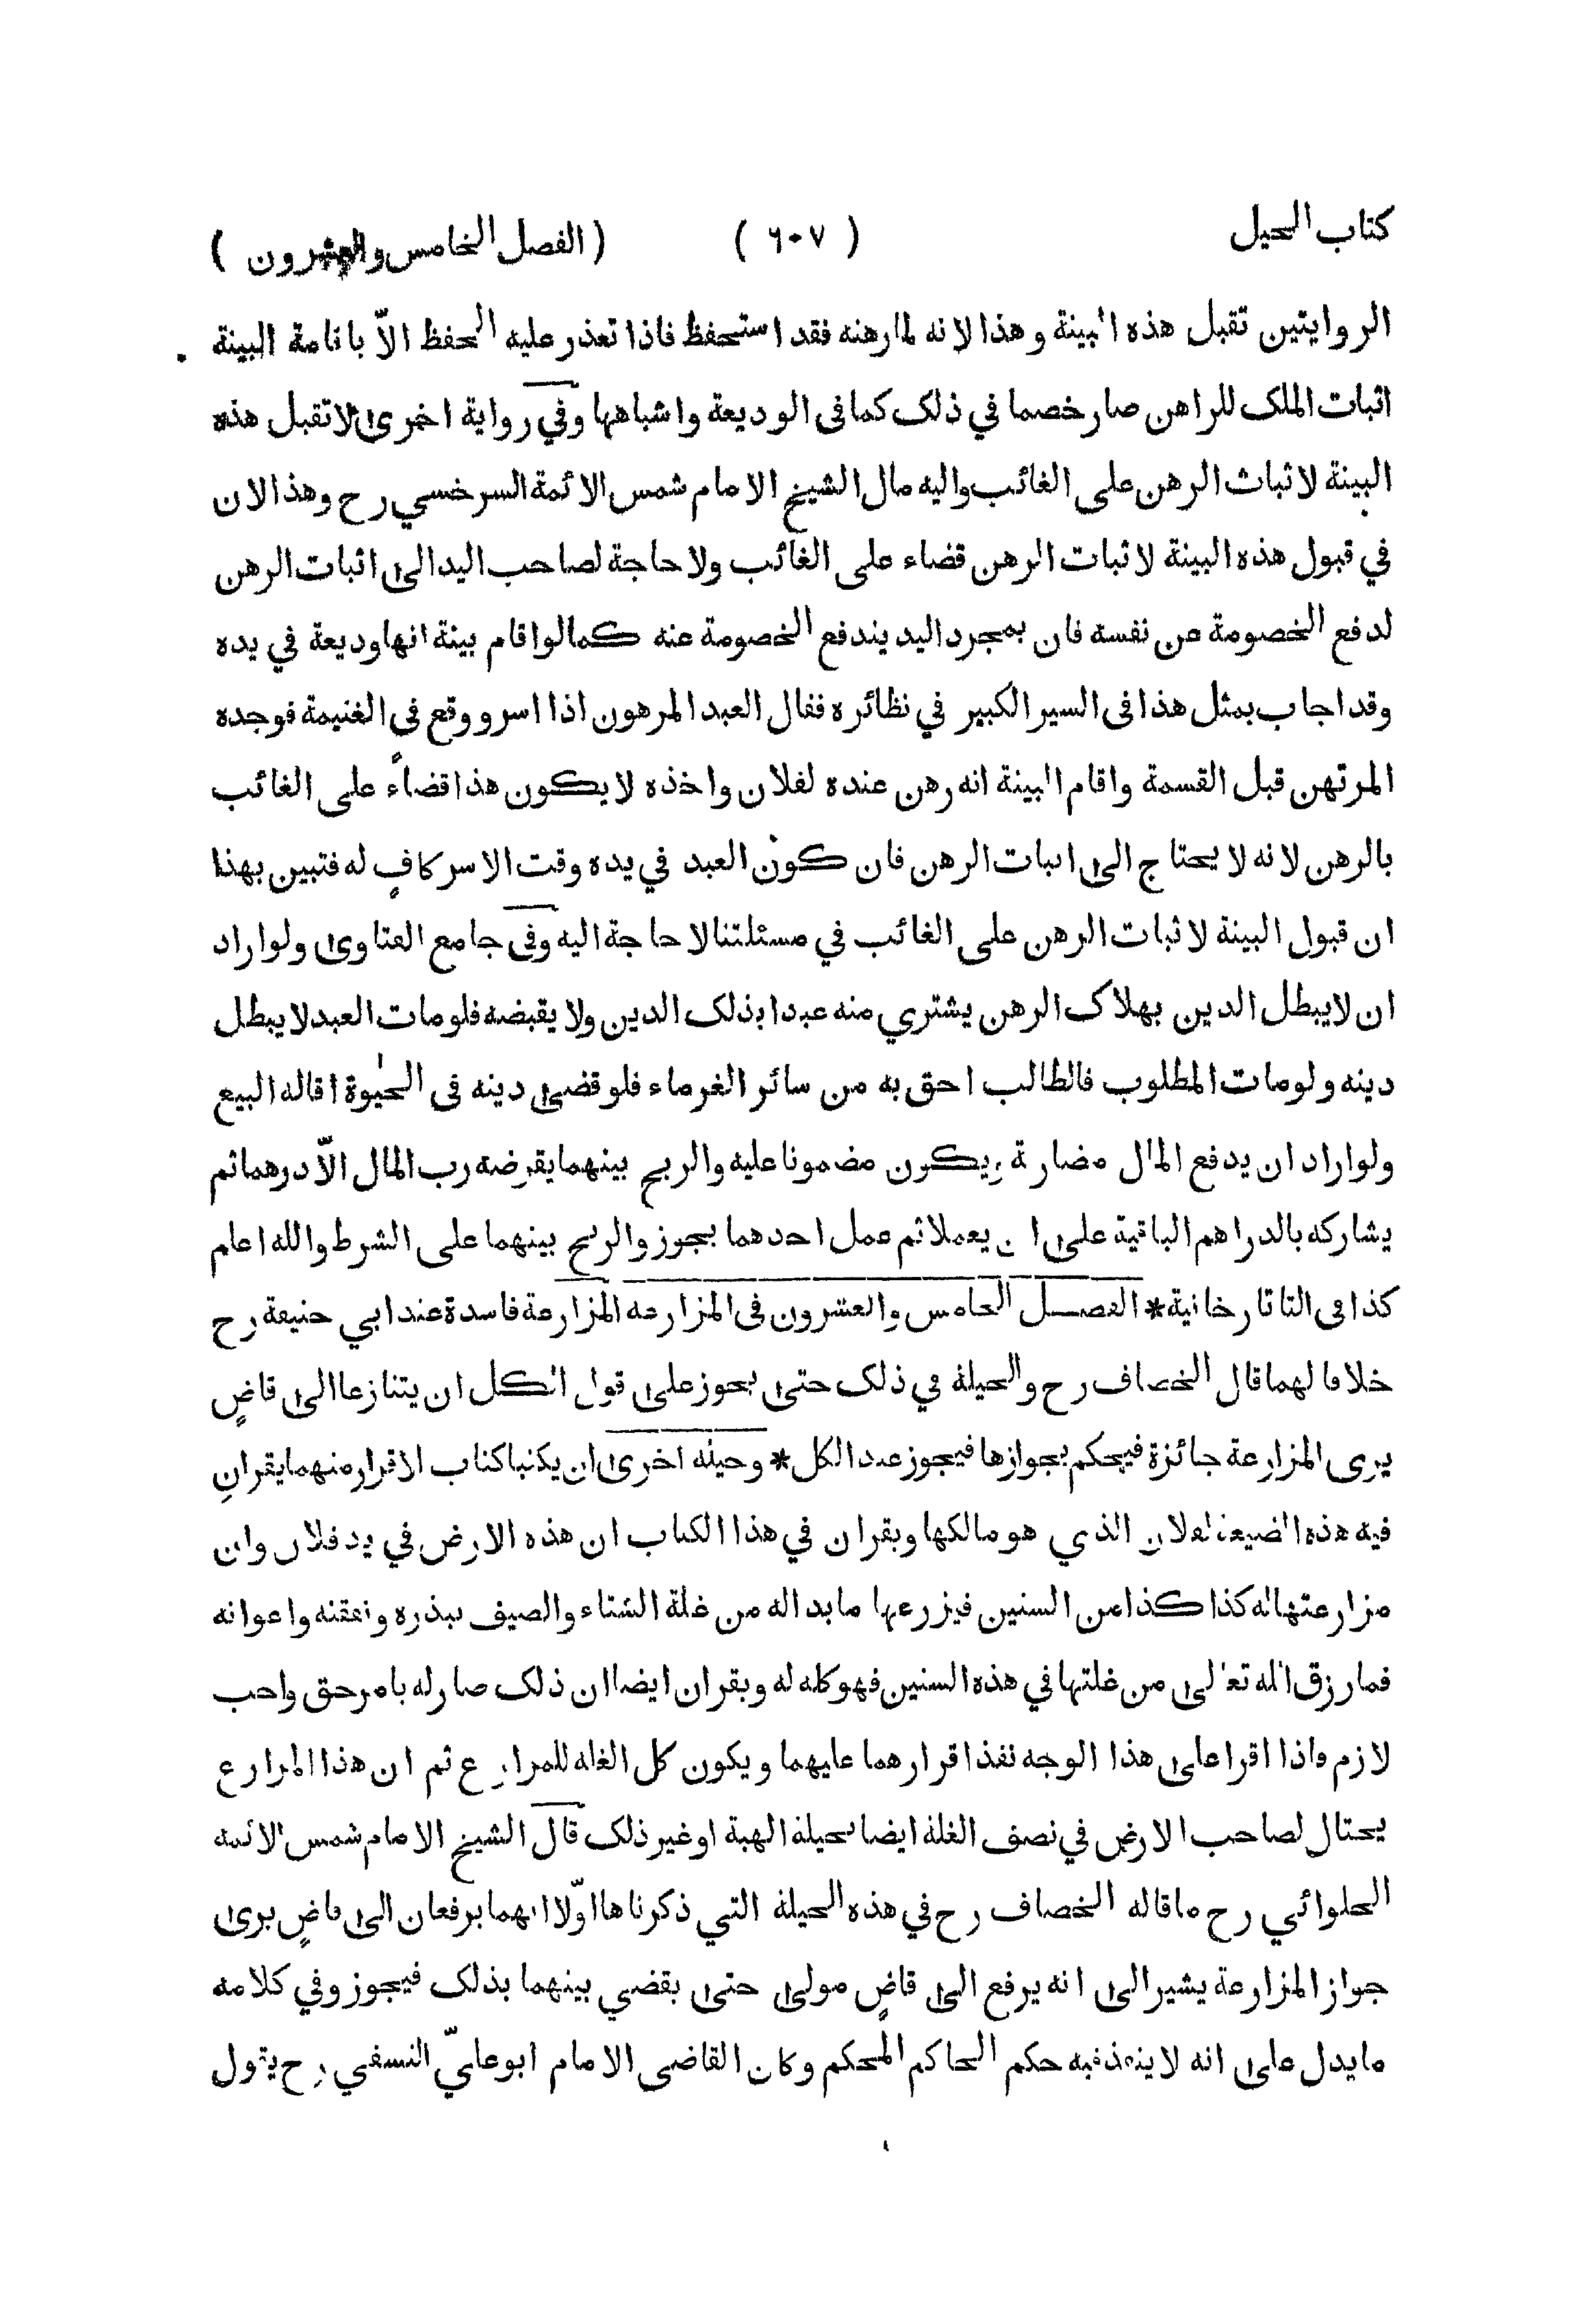 كتاب الحيل ( ٦٠٧ ) ( الفصل الخامس والعشرون )
الروايتين تقبل هذه البينة وهذا لانه لما رهنه فقد استحفظ فاذا تعذر عليه الحفظ الاّ باقامة البينة
اثبات الملك للراهن صار خصما في ذلك كما فى الوديعة واشباهها وفي رواية اخرى لا تقبل هذه
البينة لاثبات الرهن على الغائب واليه مال الشيخ الامام شمس الائمة السرخسي رح وهذا لان
في قبول هذه البينة لاثبات الرهن قضاء على الغائب ولا حاجة لصاحب اليد الى اثبات الرهن
لدفع الخصومة عن نفسه فان بمجرد اليد يندفع الخصومة عنه كما لو اقام بينة انها وديعة في يده
وقد اجاب بمثل هذا فى السير الكبير في نظائره فقال العبد المرهون اذا اسر ووقع فى الغنيمة فوجده
المرتهن قبل القسمة واقام البينة انه رهن عنده لفلان واخذه لا يكون هذا قضاءً على الغائب
بالرهن لانه لا يحتاج الى اثبات الرهن فان كون العبد في يده وقت الاسر كافٍ له فتبين بهذا
ان قبول البينة لاثبات الرهن على الغائب في مسئلتنا لا حاجة اليه وفى جامع الفتاوى ولو اراد
ان لا يبطل الدين بهلاك الرهن يشتري منه عبدا بذلك الدين ولا يقبضه فلو مات العبد لا يبطل
دينه ولو مات المطلوب فالطالب احق به من سائر الغرماء فلو قضى دينه فى الحيٰوة اقاله البيع
ولو اراد ان يدفع المال مضاربة ويكون مضمونا عليه والربح بينهما يقرضه رب المال الاّ درهما ثم
يشاركه بالدراهم الباقية على ان يعملا ثم عمل احدهما يجوز والربح بينهما على الشرط والله اعلم
كذا فى التاتارخانية * الفصل الخامس والعشرون فى المزارعة المزارعة فاسدة عند ابي حنيفة رح
خلافا لهما قال الخصاف رح والحيلة في ذلك حتى يجوز على قول الكل ان يتنازعا الى قاضٍ
يرى المزارعة جائزة فيحكم بجوازها فيجوز عند الكل * وحيلة اخرى ان يكتبا كتاب الاقرار منهما يقرانِ
فيه هذه الضيعة لفلان الذي هو مالكها ويقران في هذا الكتاب ان هذه الارض في يد فلان وان
مزارعتها له كذا كذا من السنين فيزرعها ما بدا له من غلة الشتاء والصيف ببذره ونفقته واعوانه
فما رزق الله تعالى من غلتها في هذه السنين فهو كله له ويقران ايضا ان ذلك صار له بامر حق واجب
لازم فاذا اقرا على هذا الوجه نفذ اقرارهما عليهما ويكون كل الغلة للمزارع ثم ان هذا المزارع
يحتال لصاحب الارض في نصف الغلة ايضا بحيلة الهبة او غير ذلك قال الشيخ الامام شمس الائمة
الحلوائي رح ما قاله الخصاف رح في هذه الحيلة التي ذكرناها اوّلا انهما يرفعان الى قاضٍ يرى
جواز المزارعة يشير الى انه يرفع الى قاضٍ مولى حتى يقضي بينهما بذلك فيجوز وفي كلامه
ما يدل على انه لا ينفذ فيه حكم الحاكم المحكم وكان القاضى الامام ابو عليّ النسفي رح يقول